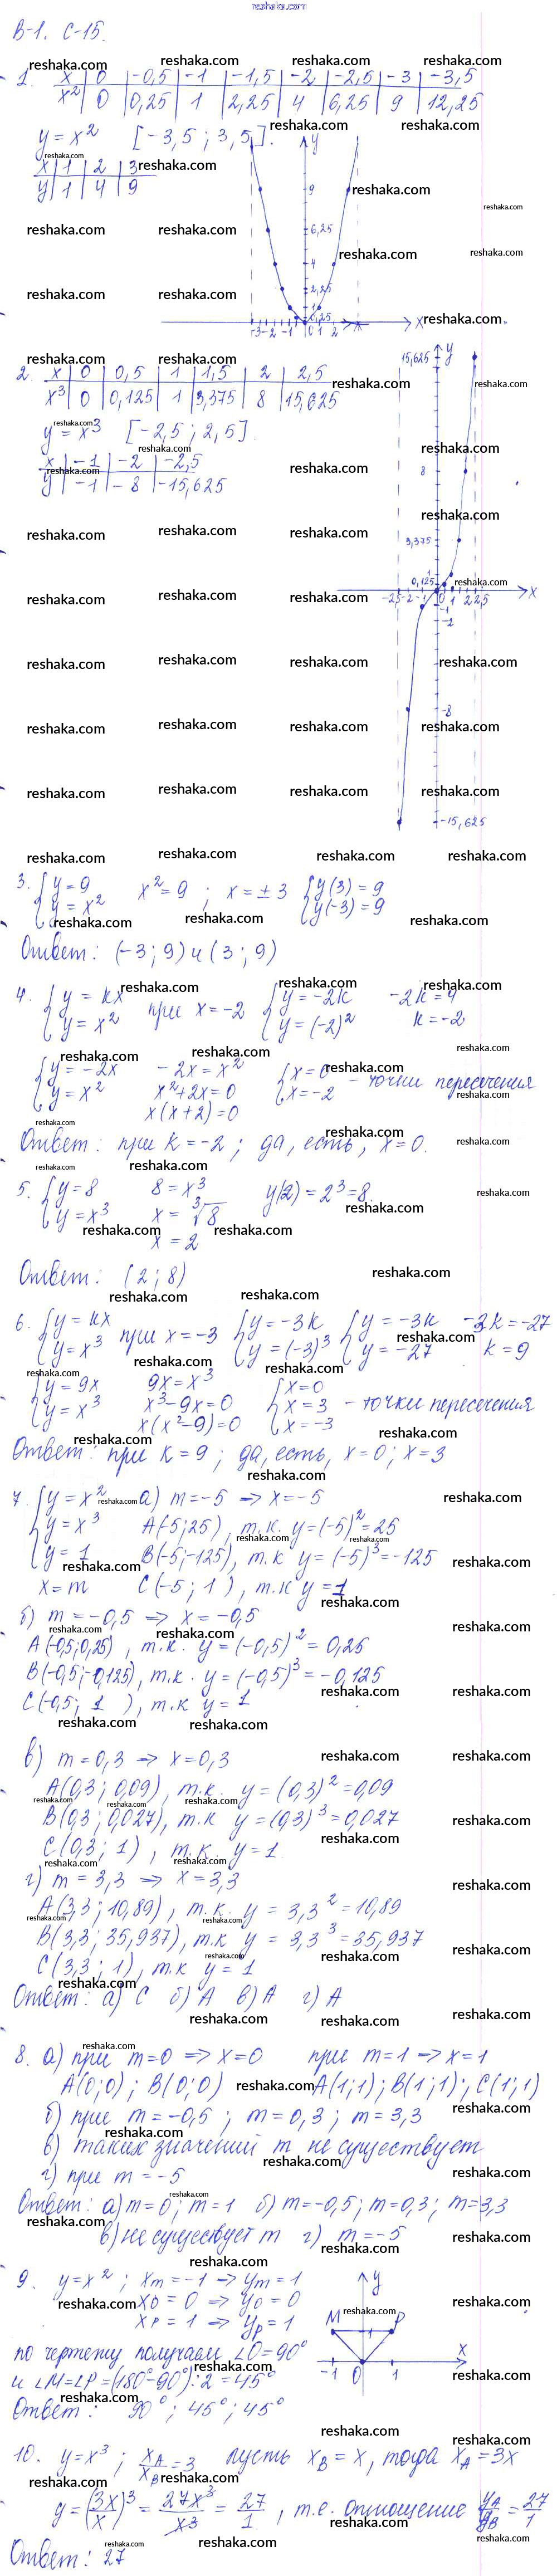 reshaka.com
В-1. С-15.
1. x | 0 | -0,5 | -1 | -1,5 | -2 | -2,5 | -3 | -3,5
x² | 0 | 0,25 | 1 | 2,25 | 4 | 6,25 | 9 | 12,25
y = x² [-3,5 ; 3,5].
x | 1 | 2 | 3
y | 1 | 4 | 9
y
9
6,25
4
2,25
1
0,25
-3 -2 -1 0 1 2 x
2. x | 0 | 0,5 | 1 | 1,5 | 2 | 2,5
x³ | 0 | 0,125 | 1 | 3,375 | 8 | 15,625
y = x³ [-2,5 ; 2,5].
x | -1 | -2 | -2,5
y | -1 | -8 | -15,625
y
15,625
8
3,375
1
0,125
-2,5 -2 -1 0 1 2 2,5 x
-1
-2
-8
-15,625
3. { y = 9 x² = 9 ; x = ± 3 { y(3) = 9
y = x² y(-3) = 9
Ответ: (-3; 9) и (3; 9)
4. { y = kx при x = -2 { y = -2k -2k = 4
y = x² y = (-2)² k = -2
{ y = -2x -2x = x² { x = 0 - точки пересечения
y = x² x² + 2x = 0 x = -2
x(x+2) = 0
Ответ: при k = -2; да, есть, x = 0.
5. { y = 8 8 = x³ y(2) = 2³ = 8.
y = x³ x = ³√8
x = 2
Ответ: (2; 8)
6. { y = kx при x = -3 { y = -3k { y = -3k -3k = -27
y = x³ y = (-3)³ y = -27 k = 9
{ y = 9x 9x = x³ { x = 0
y = x³ x³ - 9x = 0 x = 3 - точки пересечения
x(x² - 9) = 0 x = -3
Ответ: при k = 9; да, есть, x = 0; x = 3
7. { y = x² а) m = -5 => x = -5
y = x³ A(-5; 25), т.к. y = (-5)² = 25
y = 1 B(-5; -125), т.к y = (-5)³ = -125
x = m C(-5; 1), т.к y = 1
б) m = -0,5 => x = -0,5
A(-0,5; 0,25), т.к. y = (-0,5)² = 0,25
B(-0,5; -0,125), т.к. y = (-0,5)³ = -0,125
C(-0,5; 1), т.к y = 1
в) m = 0,3 => x = 0,3
A(0,3; 0,09), т.к. y = (0,3)² = 0,09
B(0,3; 0,027), т.к y = (0,3)³ = 0,027
C(0,3; 1), т.к. y = 1
г) m = 3,3 => x = 3,3
A(3,3; 10,89), т.к. y = 3,3² = 10,89
B(3,3; 35,937), т.к y = 3,3³ = 35,937
C(3,3; 1), т.к y = 1
Ответ: а) C б) A в) A г) A
8. а) при m = 0 => x = 0 при m = 1 => x = 1
A(0; 0); B(0; 0) A(1; 1); B(1; 1); C(1; 1)
б) при m = -0,5; m = 0,3; m = 3,3
в) таких значений m не существует
г) при m = -5
Ответ: а) m = 0; m = 1 б) m = -0,5; m = 0,3; m = 3,3
в) не существует m г) m = -5
9. y = x²; xм = -1 => yм = 1
x0 = 0 => y0 = 0
xp = 1 => yp = 1
y
M P
-1 0 1 x
по чертежу получаем ∠O = 90°
и ∠M = ∠P = (180° - 90°) : 2 = 45°
Ответ: 90°; 45°; 45°
10. y = x³; xA/xB = 3 пусть xB = x, тогда xA = 3x
y = (3x/x)³ = 27x³/x³ = 27/1, т.е. отношение yA/yB = 27/1
Ответ: 27